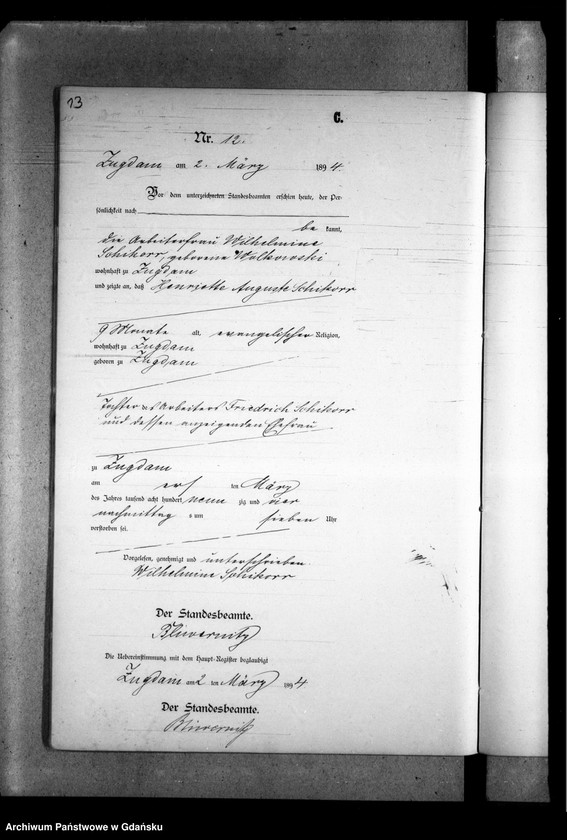 13
C.
Nr. 12.
Zugdam am 2. März 1894.
Vor dem unterzeichneten Standesbeamten erschien heute, der Per-
sönlichkeit nach
be kannt,
die Arbeiterfrau Wilhelmine
Schikorr, geborene Wolkowski
wohnhaft zu Zugdam
und zeigte an, daß Henriette Auguste Schikorr
9 Monate alt, evangelischer Religion,
wohnhaft zu Zugdam
geboren zu Zugdam
Tochter des Arbeiters Friedrich Schikorr
und dessen anzeigenden Ehefrau
zu Zugdam
am ers ten März
des Jahres tausend acht hundert neun zig und vier
nachmittag s um sieben Uhr
verstorben sei.
Vorgelesen, genehmigt und unterschrieben
Wilhelmine Schikorr
Der Standesbeamte.
Die Uebereinstimmung mit dem Haupt-Register beglaubigt
Zugdam am 2 ten März 1894
Der Standesbeamte.
Archiwum Państwowe w Gdańsku